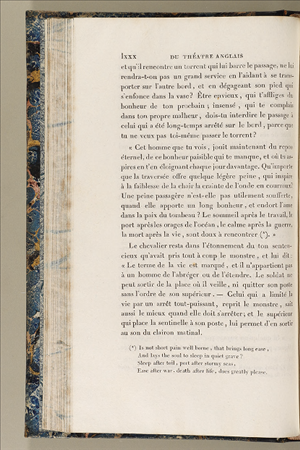 lxxx DU THÉATRE ANGLAIS
et qu'il rencontre un torrent qui lui barre le passage, ne lui
rendra-t-on pas un grand service en l'aidant à se trans-
porter sur l'autre bord, et en dégageant son pied qui
s'enfonce dans la vase? Être envieux, qui t'affliges du
bonheur de ton prochain; insensé, qui te complais
dans ton propre malheur, dois-tu interdire le passage à
celui qui a été long-temps arrêté sur le bord, parce que
tu ne veux pas toi-même passer le torrent?
« Cet homme que tu vois, jouit maintenant du repos
éternel, de ce bonheur paisible qui te manque, et où tu as-
pires en t'en éloignant chaque jour davantage. Qu'importe
que la traversée offre quelque légère peine, qui inspire
à la faiblesse de la chair la crainte de l'onde en courroux?
Une peine passagère n'est-elle pas utilement soufferte,
quand elle apporte un long bonheur, et endort l'ame
dans la paix du tombeau? Le sommeil après le travail, le
port après les orages de l'océan, le calme après la guerre,
la mort après la vie, sont doux à rencontrer (*). »
Le chevalier resta dans l'étonnement du ton senten-
cieux qu'avait pris tout à coup le monstre, et lui dit:
« Le terme de la vie est marqué, et il n'appartient pas
à un homme de l'abréger ou de l'étendre. Le soldat ne
peut sortir de la place où il veille, ni quitter son poste
sans l'ordre de son supérieur. — Celui qui a limité la
vie par un arrêt tout-puissant, reprit le monstre, sait
aussi le mieux quand elle doit s'arrêter; et le supérieur
qui place la sentinelle à son poste, lui permet d'en sortir
au son du clairon matinal.
(*) Is not short pain well borne, that brings long ease,
And lays the soul to sleep in quiet grave?
Sleep after toil, port after stormy seas,
Ease after war, death after life, does greatly please.